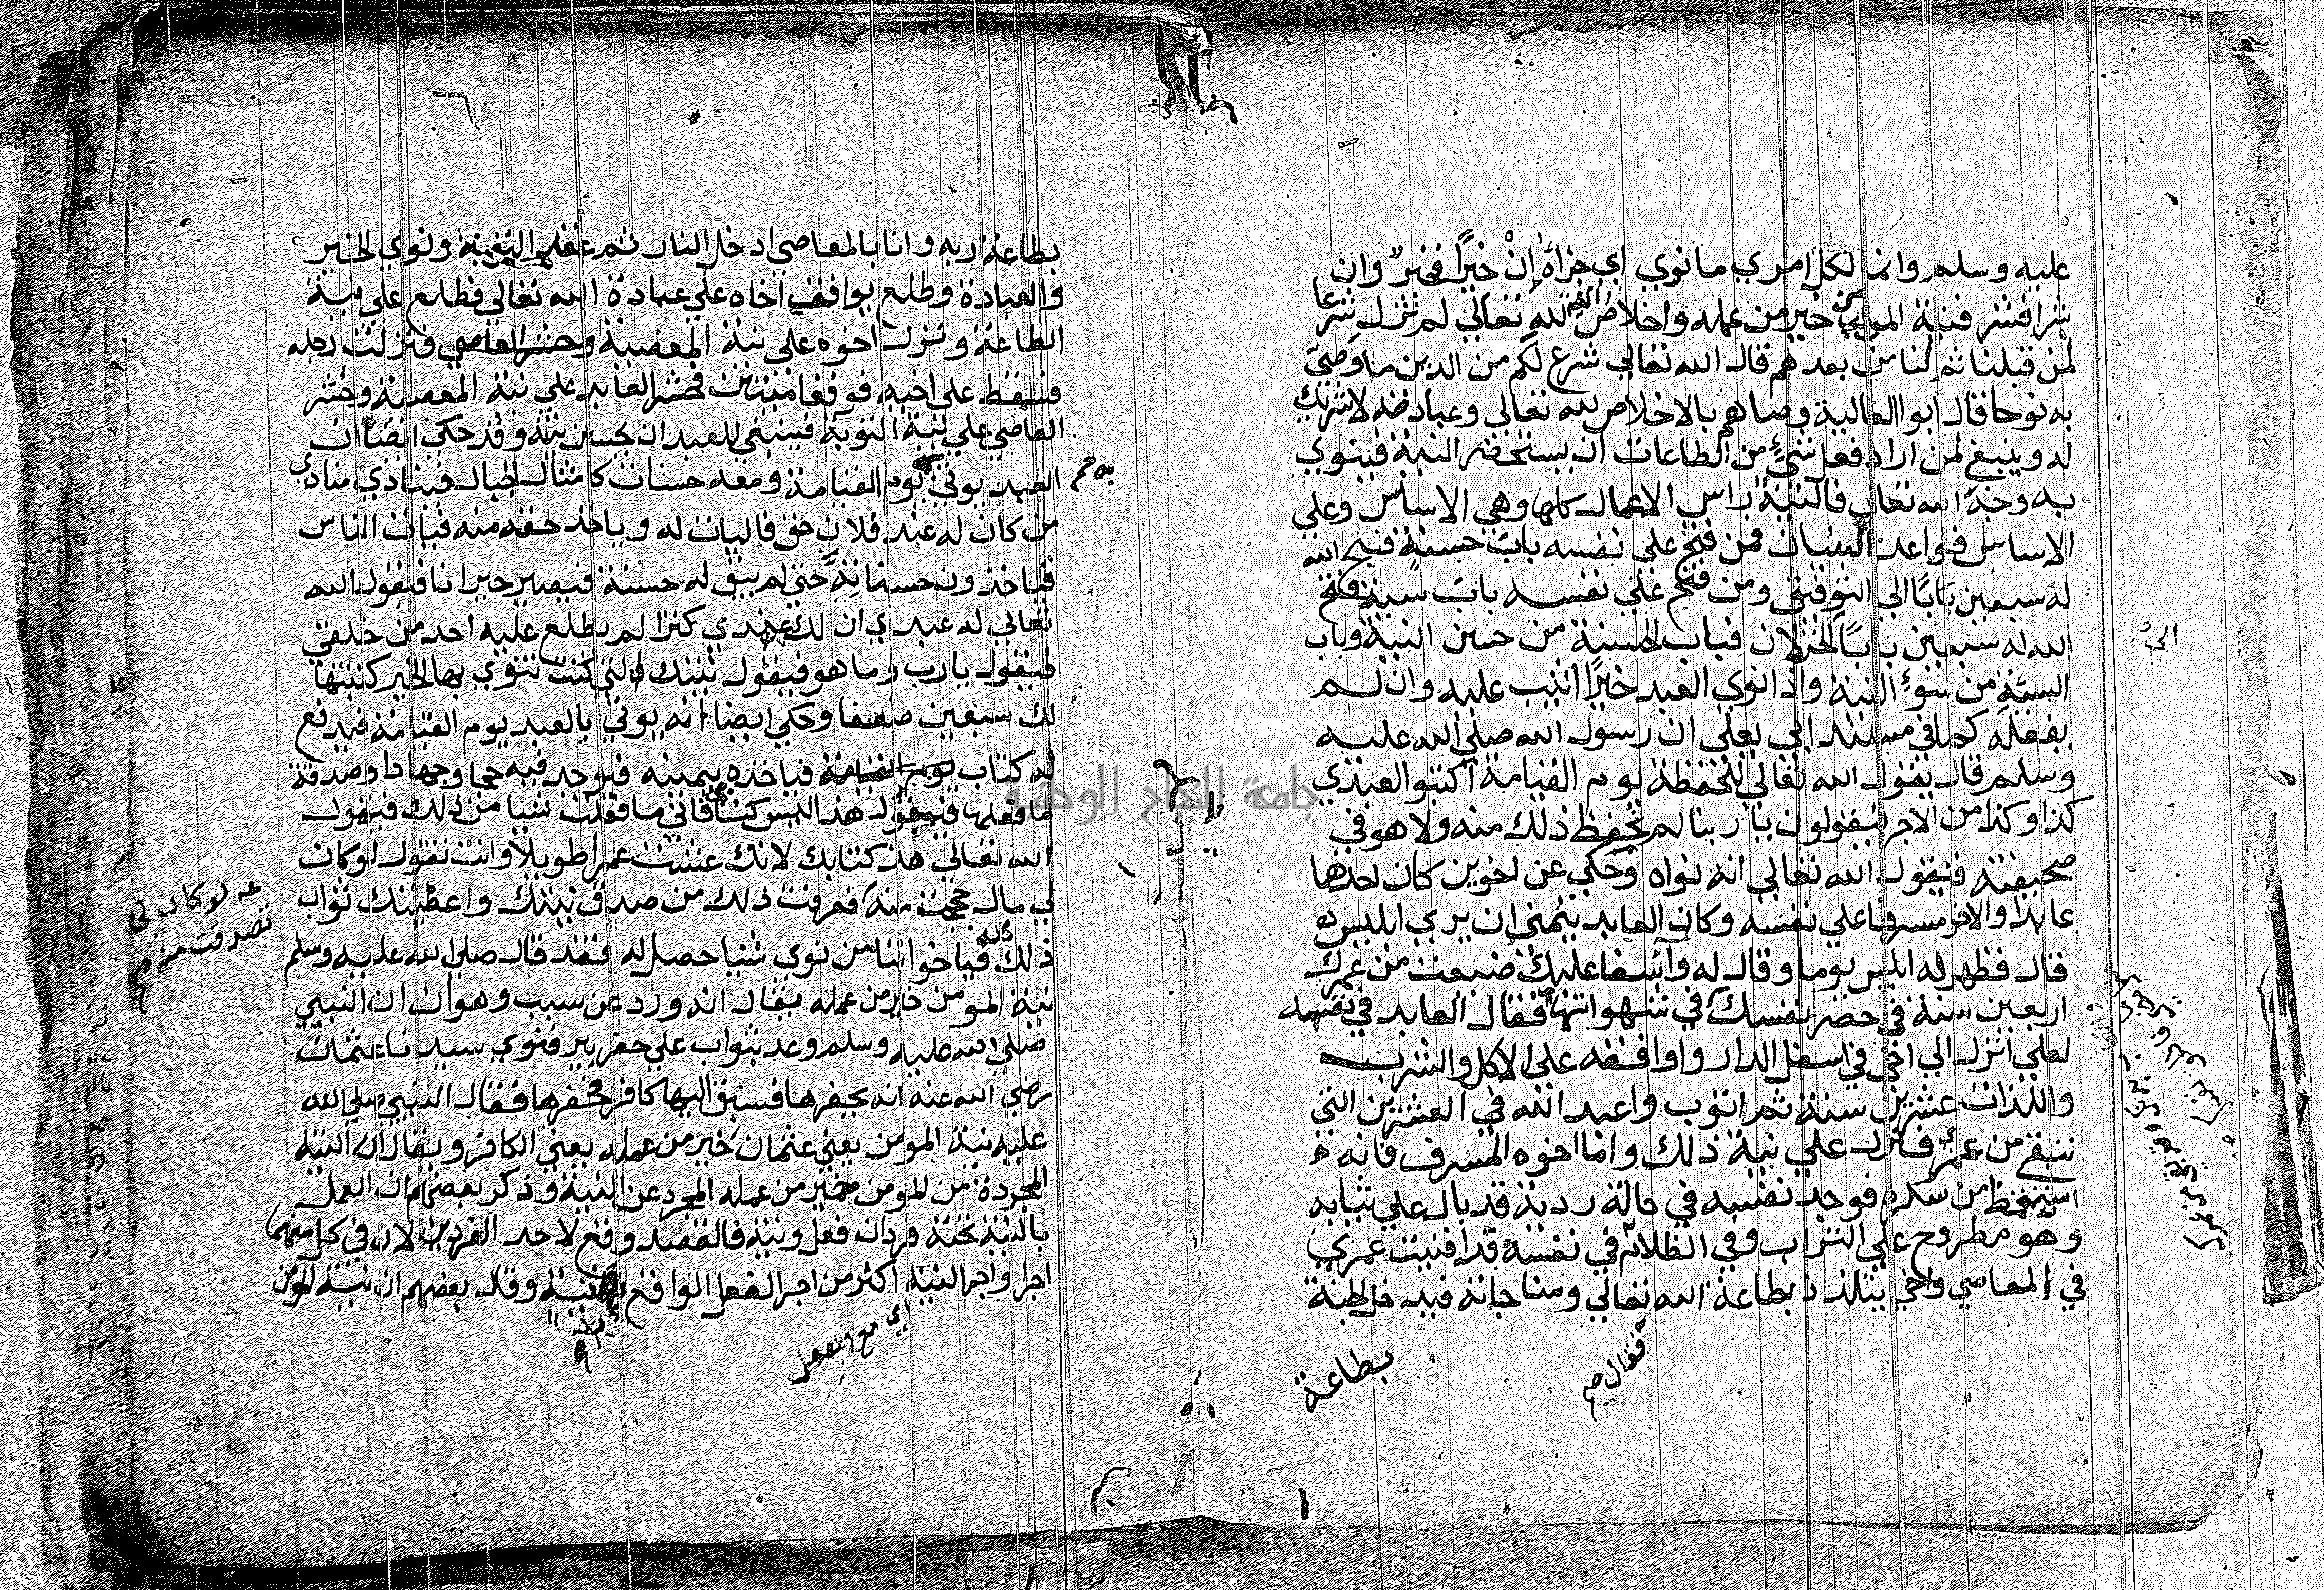 عليه وسلم وانما لكل امرئ ما نوي اي جزاؤه إنْ خيرًا فخيرٌ وان
شرا فشر فنية المومن خير من عمله واخلاص النية لله تعالي لم تزل شرعا
لمن قبلنا ثم لنا من بعدهم قال الله تعالي شرع لكم من الدين ما وَصّيَ
به نوحا قال ابوا العالية وصاهم بالاخلاص لله تعالي وعبادته لا شريك
له وينبغي لمن اراد فعل شيءٍ من الطاعات ان يستحضر النية فينوي
به وجه الله تعالي فالنية راس الاعمال كلها وهي الاساس وعلي
الاساس قواعد البنيان فمن فتح علي نفسه باب حسنة فتح الله
له سبعين بابًا الي التوفيق ومن فتح علي نفسه باب سيئة فتح
الله له سبعين بابًا الخذلان فباب الحسنة من حسن النية وباب
السيئة من سوءِ النية واذا نوي العبد خيرًا اثيب عليه وان لم
يفعله كما في مسند ابي يعلي ان رسول الله صلي الله عليه
وسلم قال يقول الله تعالي للحفظة يوم القيامة اكتبوا لعبدي
كذا وكذا من الاجر فيقولون يا ربنا لم نحفظ ذلك منه ولا هو في
صحيفته فيقول الله تعالي انه نواه وحكي عن اخوين كان احدهما
عابدا والاخر مسرفا علي نفسه وكان العابد يتمني ان يري ابليس
قال فظهر له ابليس يوما وقال له وآسفا عليك ضيعت من عمرك
اربعين سنة في حصر نفسك في شهواتها فقال العابد في نفسه
لعلي انزل الي اخي في اسفل الدار واوافقه علي الاكل والشرب
واللذات عشرين سنة ثم اتوب واعبد الله في العشرين التي
تبقي من عمري فنزل علي نية ذلك واما اخوه المسرف فانه
استيقظ من سكره فوجد نفسه في حالة ردية قد بال علي ثيابه
وهو مطروح علي التراب وفي الظلام في نفسه قد افنيت عمري
في المعاصي واخي يتلذذ بطاعة الله تعالي ومناجاته فيدخل الجنة
فقال صح
بطاعة
الي
بطاعة ربه وانا بالمعاصي ادخل النار ثم عقد التوبة ونوي الخير
والعبادة وطلع يوافق اخاه علي عبادة الله تعالي فطلع علي نية
الطاعة ونزل اخوه علي نية المعصية وحشر العاصي فنزلت رجله
فسقط علي اخيه فوقعا ميتين فحشر العابد علي نية المعصية وحشر
العاصي علي نية التوبة فينبغي للعبد ان يحسن نيته وقد حكي ايضا ان
العبد يوتي يوم القيامة ومعه حسنات كامثال الجبال فينادي منادي
من كان له عند فلان حق فاليات له وياخذ حقه منه فيات الناس
فياخذون حسناته حتي لم يبق له حسنة فيصير حيرانا فيقول الله
تعالي له عبدي ان لك عندي كنزا لم يطلع عليه احد من خلقي
فيقول يا رب وما هو فيقول نيتك التي كنت تنوي بها الخير كتبتها
لك سبعين ضعفا وحكي ايضا انه يوتي بالعبد يوم القيامة فيدفع
له كتاب يوم القيامة فياخذه بيمينه فيوجد فيه حجا وجهادا وصدقة
ما فعلها فيقول هذا ليس كتابي فاني ما فعلت شيا من ذلك فيقول
الله تعالي هذا كتابك لانك عشت عمرا طويلاً وانت تقول لو كان
لي مال حججت منه فعرفت ذلك من صدق نيتك واعطيتك ثواب
ذلك كله فيا اخواننا من نوي شيا حصل له فقد قال صلي الله عليه وسلم
نية المومن خير من عمله يقال انه ورد عن سبب وهو ان النبي
صلي الله عليه وسلم وعد بثواب علي حفر بير فنوي سيدنا عثمان
رضي الله عنه انه يحفرها فسبق اليها كافر فحفرها فقال النبي صلي الله
عليه نية المومن يعني عثمان خير من عمله يعني الكافر ويقال ان النية
المجردة من المومن خير من عمله المجرد عن النية وذكر بعضهم ان العمل
بالنية تحته فردان فعل ونية فالقصد وقع لاحد الفردين لان في كل منهما
اجرا واجر النية اكثر من اجر الفعل الواقع بنية وقال بعضهم ان نية المومن
اي مع العمل
لو كان لي
تصدقت منه صح
جامعة النجاح الوطنية